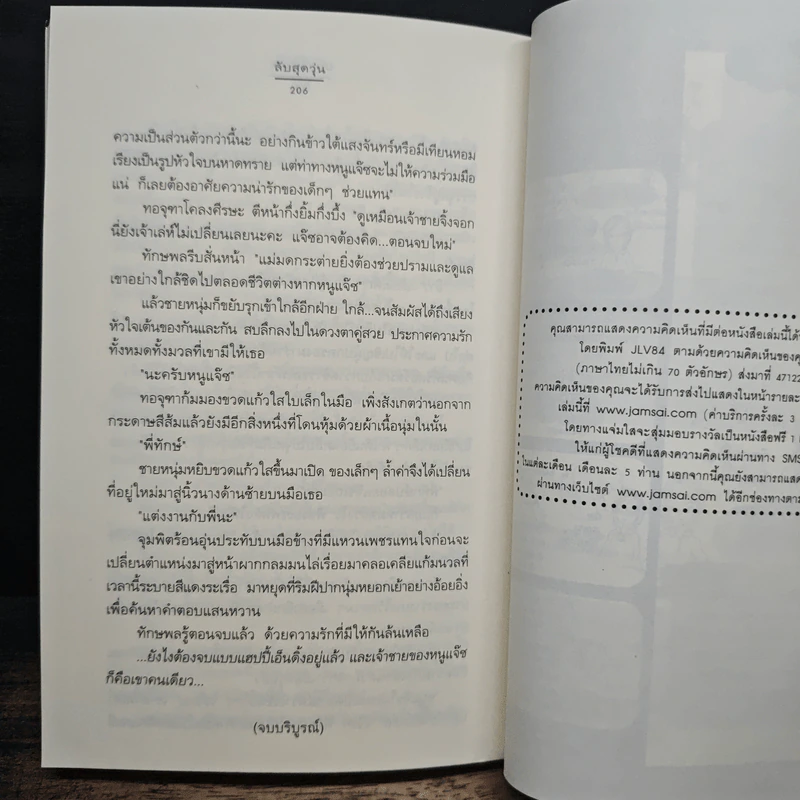 ลับสุดวุ่น
206
ความเป็นส่วนตัวกว่านี้นะ อย่างกินข้าวใต้แสงจันทร์หรือมีเทียนหอม
เรียงเป็นรูปหัวใจบนหาดทราย แต่ท่าทางหนูแจ๊ซจะไม่ให้ความร่วมมือ
แน่ ก็เลยต้องอาศัยความน่ารักของเด็กๆ ช่วยแทน"
ทอจุฑาโคลงศีรษะ ตีหน้ากึ่งยิ้มกึ่งบึ้ง "ดูเหมือนเจ้าชายจิ้งจอก
นี่ยังเจ้าเล่ห์ไม่เปลี่ยนเลยนะคะ แจ๊ซอาจต้องคิด...ตอนจบใหม่"
ทักษพลรีบสั่นหน้า "แม่มดกระต่ายยิ่งต้องช่วยปรามและดูแล
เขาอย่างใกล้ชิดไปตลอดชีวิตต่างหากหนูแจ๊ซ"
แล้วชายหนุ่มก็ขยับรุกเข้าใกล้อีกฝ่าย ใกล้...จนสัมผัสได้ถึงเสียง
หัวใจเต้นของกันและกัน สบลึกลงไปในดวงตาคู่สวย ประกาศความรัก
ทั้งหมดทั้งมวลที่เขามีให้เธอ
"นะครับหนูแจ๊ซ"
ทอจุฑาก้มมองขวดแก้วใสใบเล็กในมือ เพิ่งสังเกตว่านอกจาก
กระดาษสีส้มแล้วยังมีอีกสิ่งหนึ่งที่โดนหุ้มด้วยผ้าเนื้อนุ่มในนั้น
"พี่ทักษ์"
ชายหนุ่มหยิบขวดแก้วใสขึ้นมาเปิด ของเล็กๆ ล้ำค่าจึงได้เปลี่ยน
ที่อยู่ใหม่มาสู่นิ้วนางด้านซ้ายบนมือเธอ
"แต่งงานกับพี่นะ"
จุมพิตร้อนอุ่นประทับบนมือข้างที่มีแหวนเพชรแทนใจก่อนจะ
เปลี่ยนตำแหน่งมาสู่หน้าผากกลมมนไล่เรื่อยมาคลอเคลียแก้มนวลที่
เวลานี้ระบายสีแดงระเรื่อ มาหยุดที่ริมฝีปากนุ่มหยอกเย้าอย่างอ้อยอิ่ง
เพื่อค้นหาคำตอบแสนหวาน
ทักษพลรู้ตอนจบแล้ว ด้วยความรักที่มีให้กันล้นเหลือ
...ยังไงต้องจบแบบแฮปปี้เอ็นดิ้งอยู่แล้ว และเจ้าชายของหนูแจ๊ซ
ก็คือเขาคนเดียว...
(จบบริบูรณ์)
คุณสามารถแสดงความคิดเห็นที่มีต่อหนังสือเล่มนี้ได้
โดยพิมพ์ JLV84 ตามด้วยความคิดเห็นของคุ
(ภาษาไทยไม่เกิน 70 ตัวอักษร) ส่งมาที่ 47122
ความคิดเห็นของคุณจะได้รับการส่งไปแสดงในหน้ารายละ
เล่มนี้ที่ www.jamsai.com (ค่าบริการครั้งละ 3
โดยทางแจ่มใสจะสุ่มมอบรางวัลเป็นหนังสือฟรี 1
ให้แก่ผู้โชคดีที่แสดงความคิดเห็นผ่านทาง SMS
ในแต่ละเดือน เดือนละ 5 ท่าน นอกจากนี้คุณยังสามารถแสด
ผ่านทางเว็บไซต์ www.jamsai.com ได้อีกช่องทางตาม